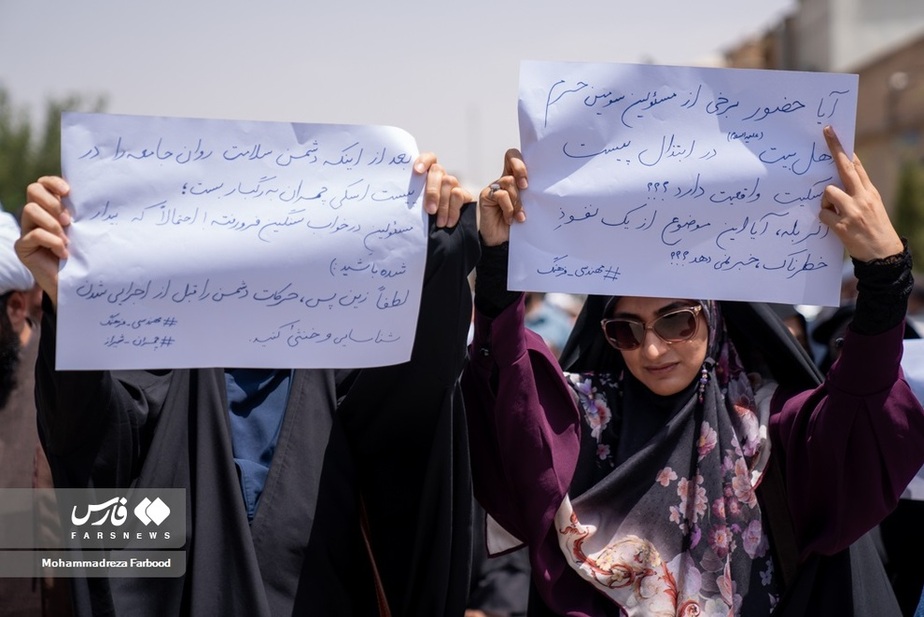 آیا حضور برخی از مسئولین سومین حرم
اهل بیت (علیه السلام) در ابتذال پیست
اسکیت واقعیت دارد؟؟؟
اگر بله، آیا این موضوع از یک نفوذِ
خطرناک، خبر نمی دهد؟؟؟
#مهندسی_فرهنگ
بعد از اینکه دشمن سلامت روان جامعه را در
پیست اسکی چمران به رگبار بست؛
مسئولین در خواب سنگین فرو رفته! احتمالاً که بیدار
شده باشید:)
لطفاً زین پس، حرکات دشمن را قبل از اجرایی شدن
شناسایی و خنثی کنید.
#مهندسی_فرهنگ
#چمران_شیراز
فارس
FARSNEWS
Mohammadreza Farbood